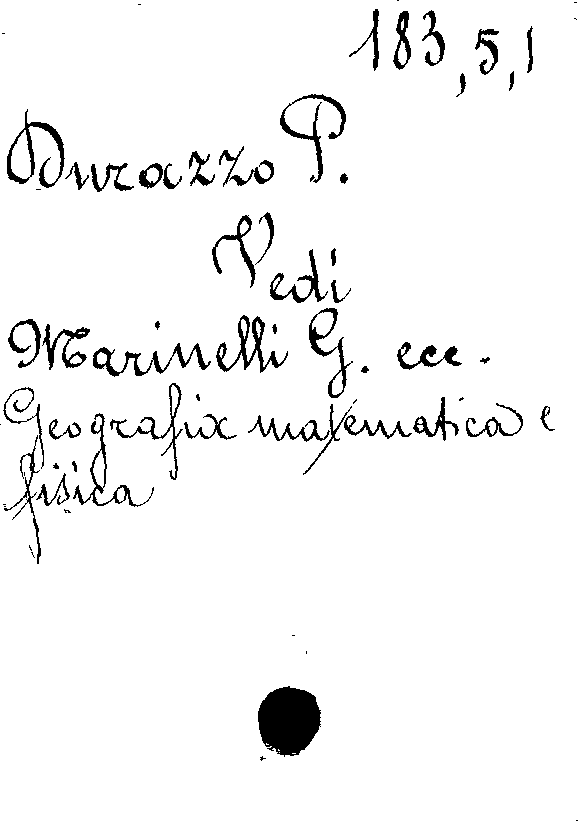 183,5,1
Durazzo P.
Vedi
Marinelli G. ecc.
Geografia matematica e
fisica